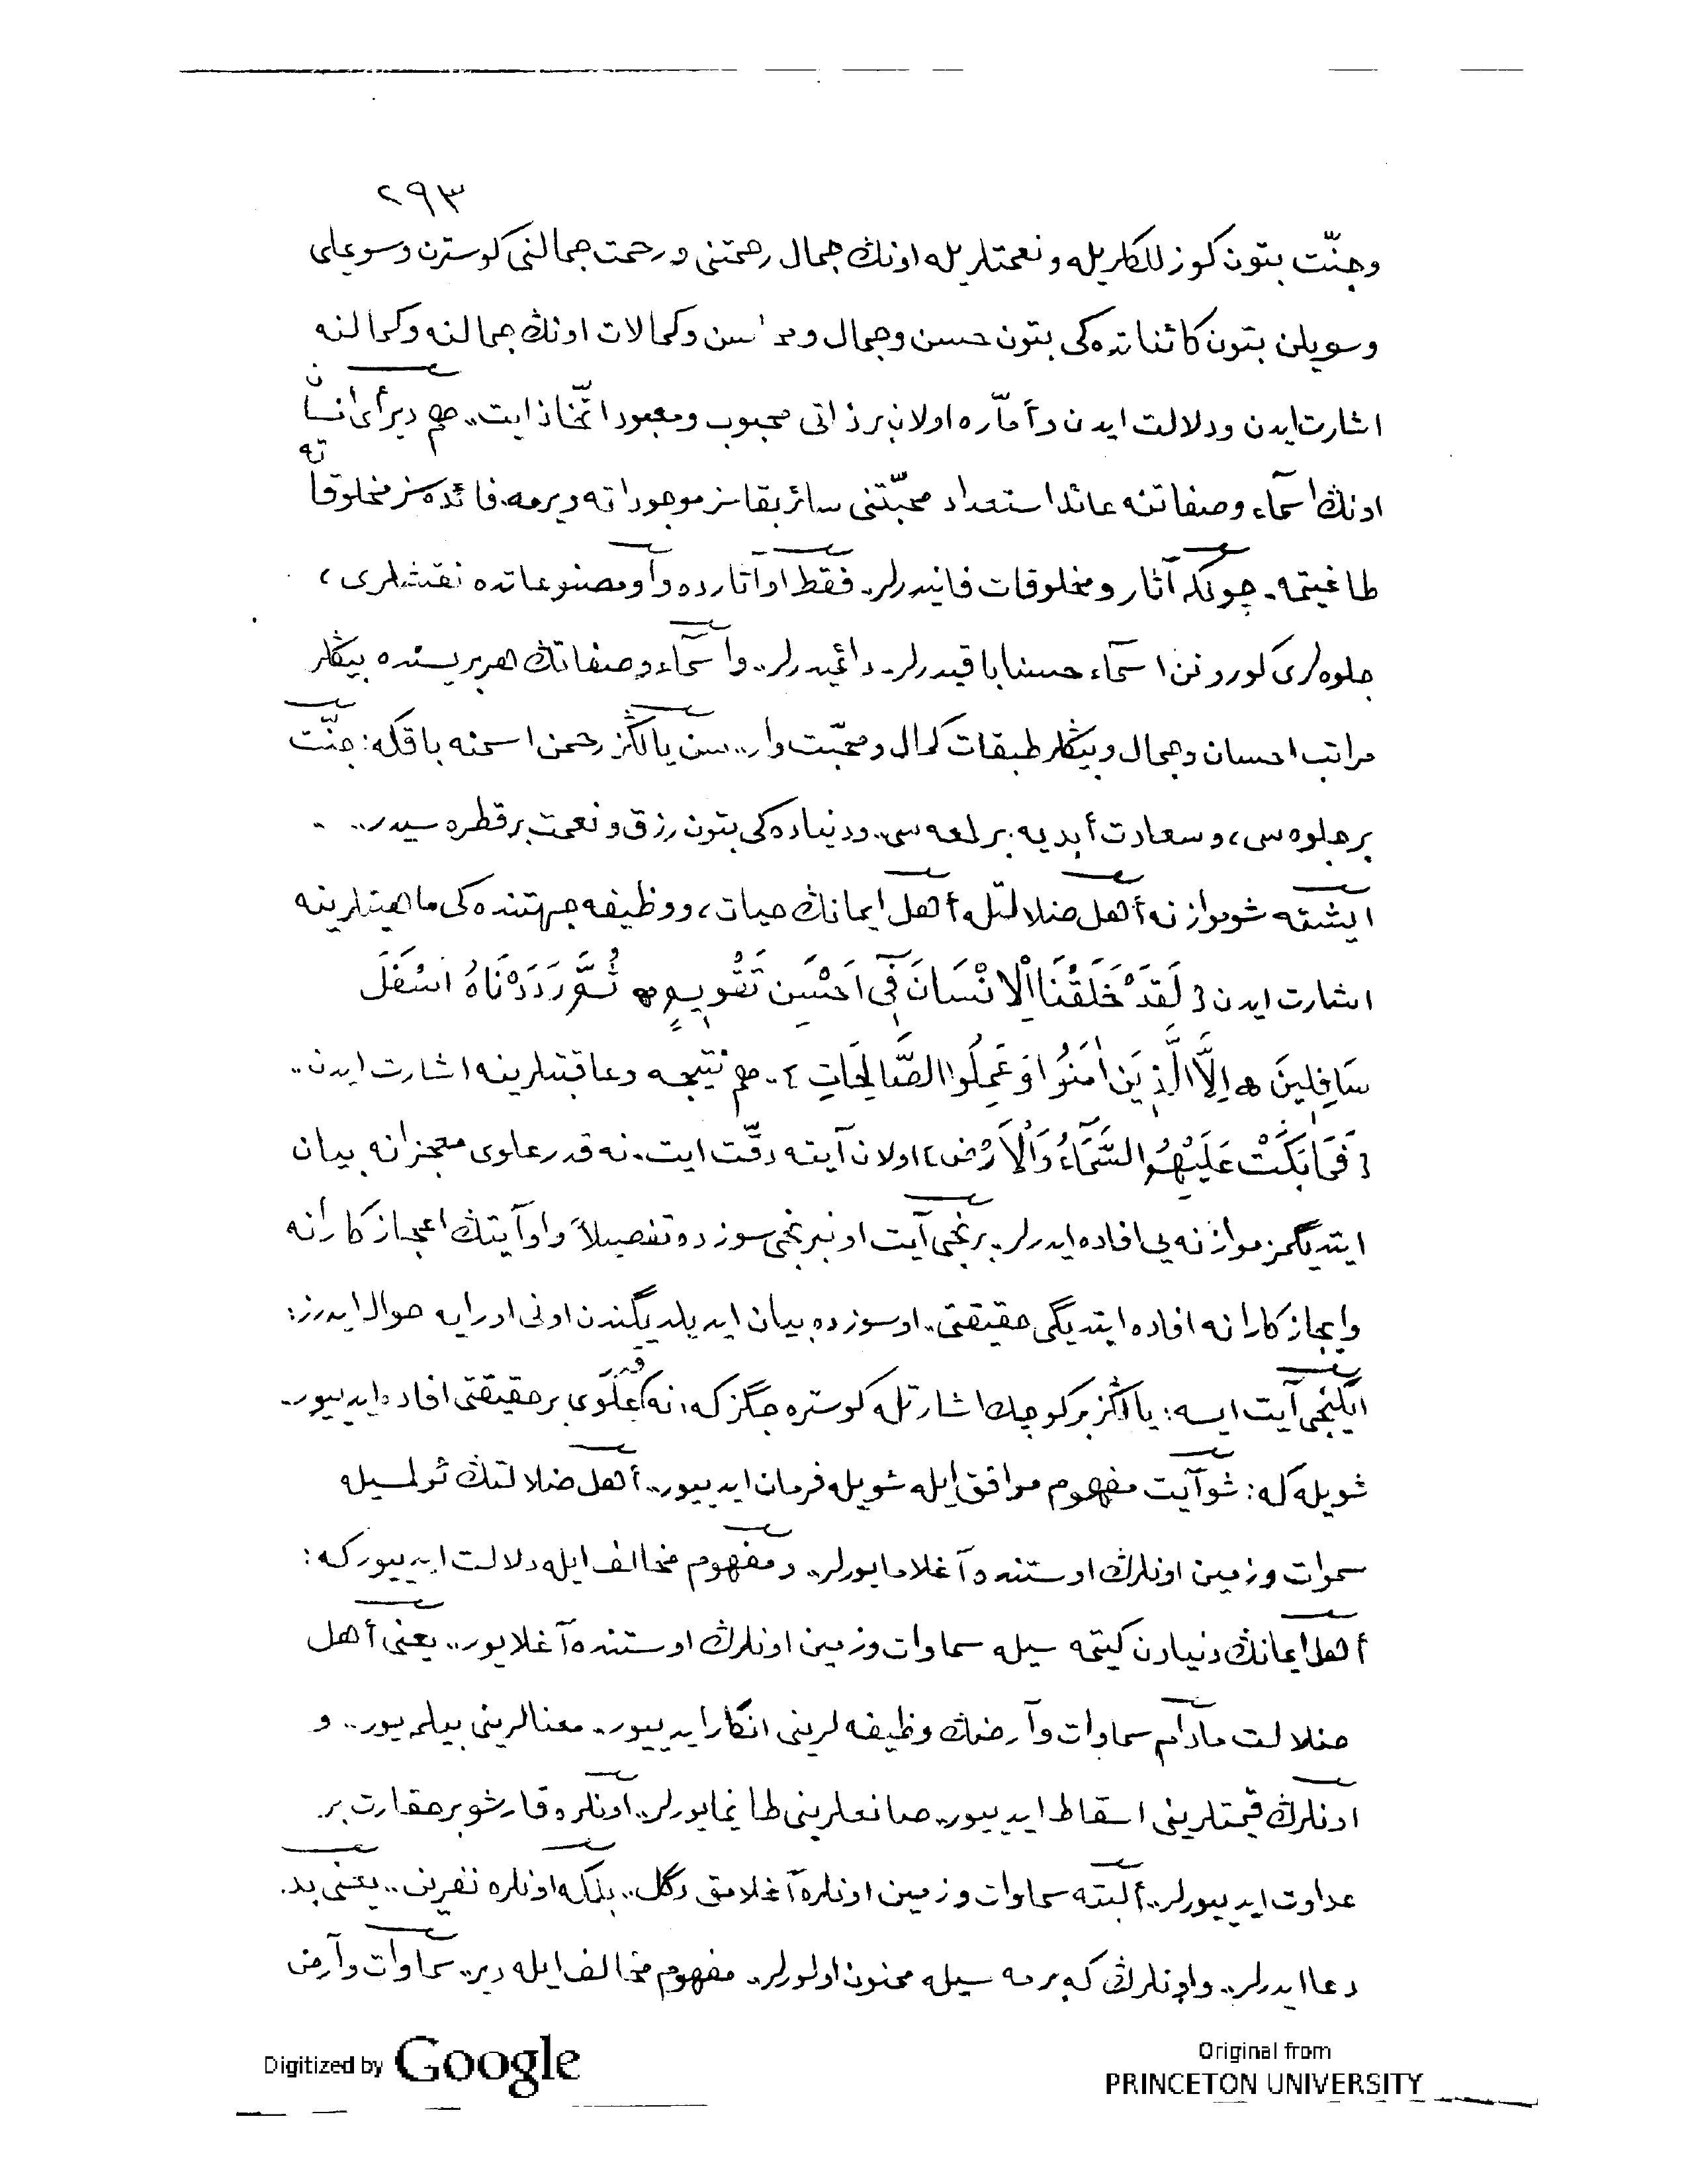 ٢٩٣
وجنّت بتون كوزللكلريله ونعمتلريله اونڭ جمال رحمتنى ورحمت جمالنى كوسترن وسويلى
وسويلن بتون كائناتده كى بتون حسن وجمال ومحاسن وكمالات اونڭ جمالنه وكمالنه
اشارت ايدن ودلالت ايدن وأمّاره اولان بر ذاتى محبوب ومعبود اتّخاذ ايت.. هم دير أى انسان
اونڭ اسمآء وصفاتنه عائد استعداد محبّتنى سائر بقاسز موجوداته ويرمه. فائده سز مخلوقاته
طاغيتمه. چونكه آثار ومخلوقات فانيدرلر. فقط او آثارده وأو مصنوعاتده نقشلرى،
جلوه لرى كورونن اسمآء حسنا باقيدرلر. دائميدرلر.. وأسمآء وصفاتڭ هربريسنده بيڭلر
مراتب احسان وجمال وبيڭلر طبقات كمال ومحبّت وار.. سن يالڭز رحمن اسمنه باق كه: جنّت
بر جلوه سى، وسعادت أبديه بر لمعه سى.. ودنياده كى بتون رزق ونعمت بر قطره سيدر..
ايشته شو موازنه أهل ضلالتله أهل ايمانڭ حيات، ووظيفه جهتنده كى ماهيتلرينه
اشارت ايدن ﴿ لَقَدْ خَلَقْنَا اْلاِنْسَانَ فِٓى اَحْسَنِ تَقْوِيمٍ ۞ ثُمَّ رَدَدْنَاهُ اَسْفَلَ
سَافِلِينَ ۞ اِلاَّ الَّذِينَ اٰمَنُوا وَعَمِلُوا الصَّالِحَاتِ ﴾.. هم نتيجه وعاقبتلرينه اشارت ايدن..
﴿ فَمَا بَكَتْ عَلَيْهِمُ السَّمَٓاءُ وَاْلاَرْضُ ﴾ اولان آيته دقّت ايت. نه قدر علوى معجزانه بيان
ايتديگمز موازنه يى افاده ايدرلر. برنجى آيت اون برنجى سوزده تفصيلاً واو آيتڭ اعجازكارانه
وايجازكارانه افاده ايتديگى حقيقتى.. او سوزده بيان ايديلديگندن اونى اورايه حواله ايدرز:
ايكنجى آيت ايسه: يالڭز بر كوچك اشارتله كوستره جگز كه: نه قدر علوى بر حقيقتى افاده ايدييور.
شويله كه: شو آيت مفهوم موافق ايله شويله فرمان ايدييور.. أهل ضلالتڭ ئولمسيله
سموات وزمين اونلرڭ اوستنده آغلامايورلر.. ومفهوم مخالف ايله دلالت ايدييور كه:
أهل ايمانڭ دنيادن كيتمه سيله سماوات وزمين اونلرڭ اوستنده آغلايور.. يعنى أهل
ضلالت مادام سماوات وأرضڭ وظيفه لرينى انكار ايدييور.. معنالرينى بيلمه يور.. و
اونلرڭ قيمتلرينى اسقاط ايدييور.. صانعلرينى طانيمايورلر.. اونلره قارشو بر حقارت بر
عداوت ايدييورلر.. ألبته سماوات وزمين اونلره آغلامق دگل.. بلكه اونلره نفرين.. يعنى بد
دعا ايدرلر.. واونلرڭ كبرمه سيله ممنون اولورلر.. مفهوم مخالف ايله دير.. سماوات وأرض
Digitized by Google
Original from
PRINCETON UNIVERSITY